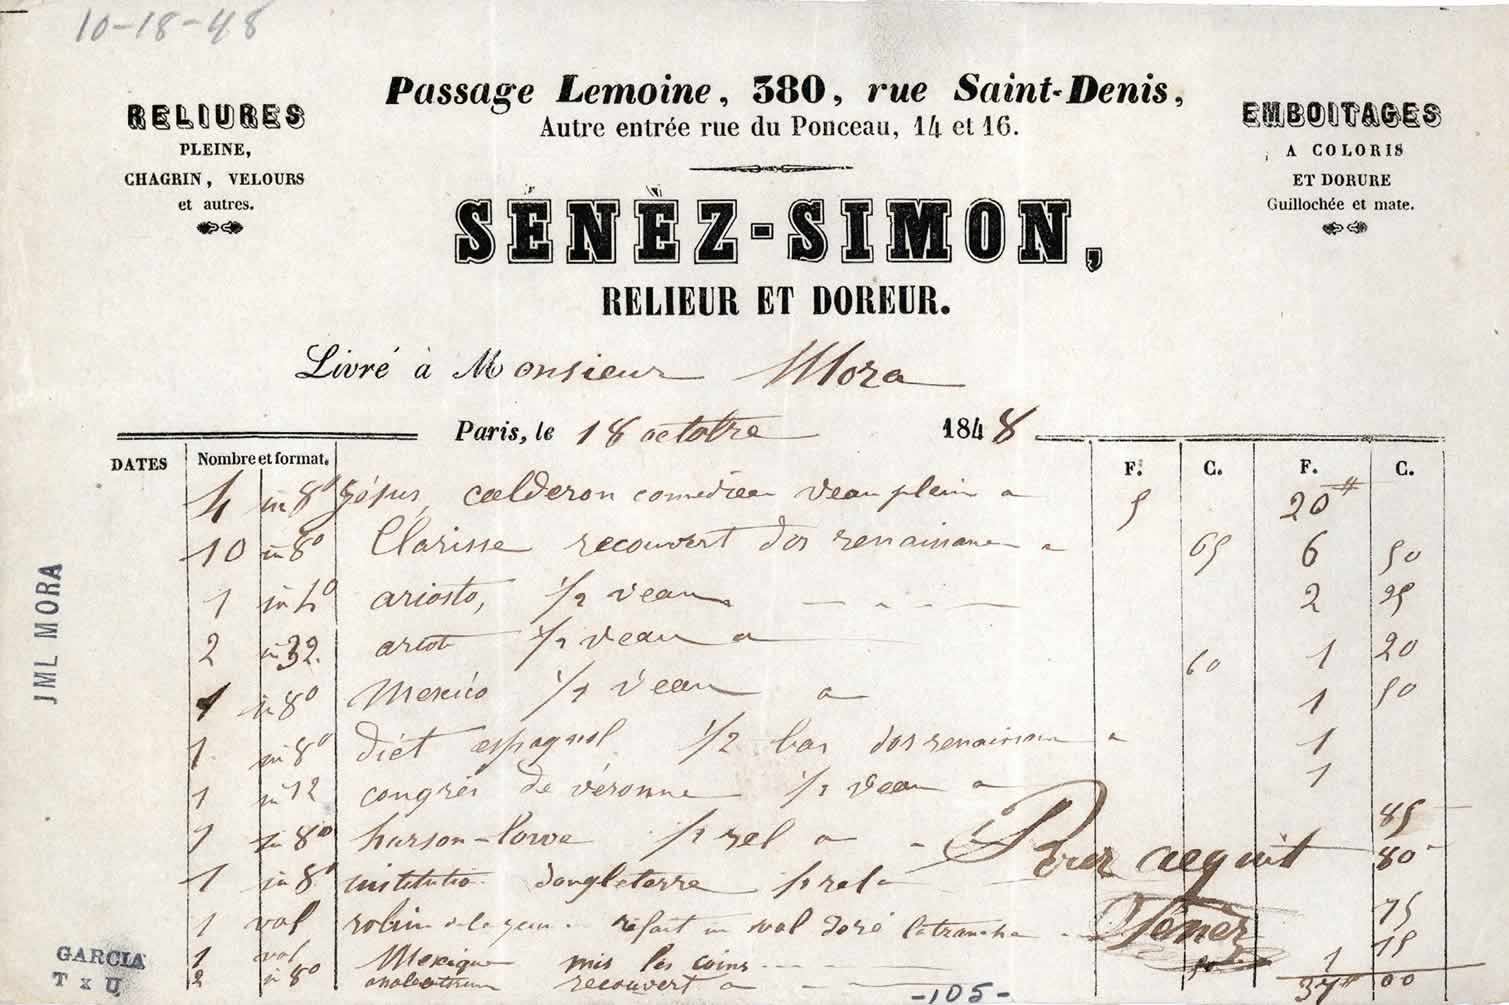 10-18-48
Passage Lemoine, 380, rue Saint-Denis,
Autre entrée rue du Ponceau, 14 et 16.
RELIURES
PLEINE,
CHAGRIN, VELOURS
et autres.
EMBOITAGES
A COLORIS
ET DORURE
Guillochée et mate.
SÉNÈZ-SIMON,
RELIEUR ET DOREUR.
Livré à Monsieur Mora
Paris, le 18 octobre 1848
DATES Nombre et format. F. C. F. C.
4 in 8° calderon veau plein a 5 20
10 in 8° Clarisse recouvert dos renaissance a 65 6 50
1 in 4° ariosto, 1/2 veau 2 25
2 in 32. 1/2 veau a 60 1 20
1 in 8° Mexico 1/2 veau a 1 50
1 in 8° dict espagnol 1/2 bas dos renaissance a 1
1 in 12 congrès de véronne 1/2 veau a 1
1 in 8° 1/2 rel a 85
1 in 8° institutio d'angleterre 1/2 rel a 80
Pour acquit
1 vol refait un vol doré la tranche 75
Sénèz
1 vol Mexique mis les coins 15
2 in 8° recouvert a 50 1
37 00
-105-
JML MORA
GARCIA
T x U